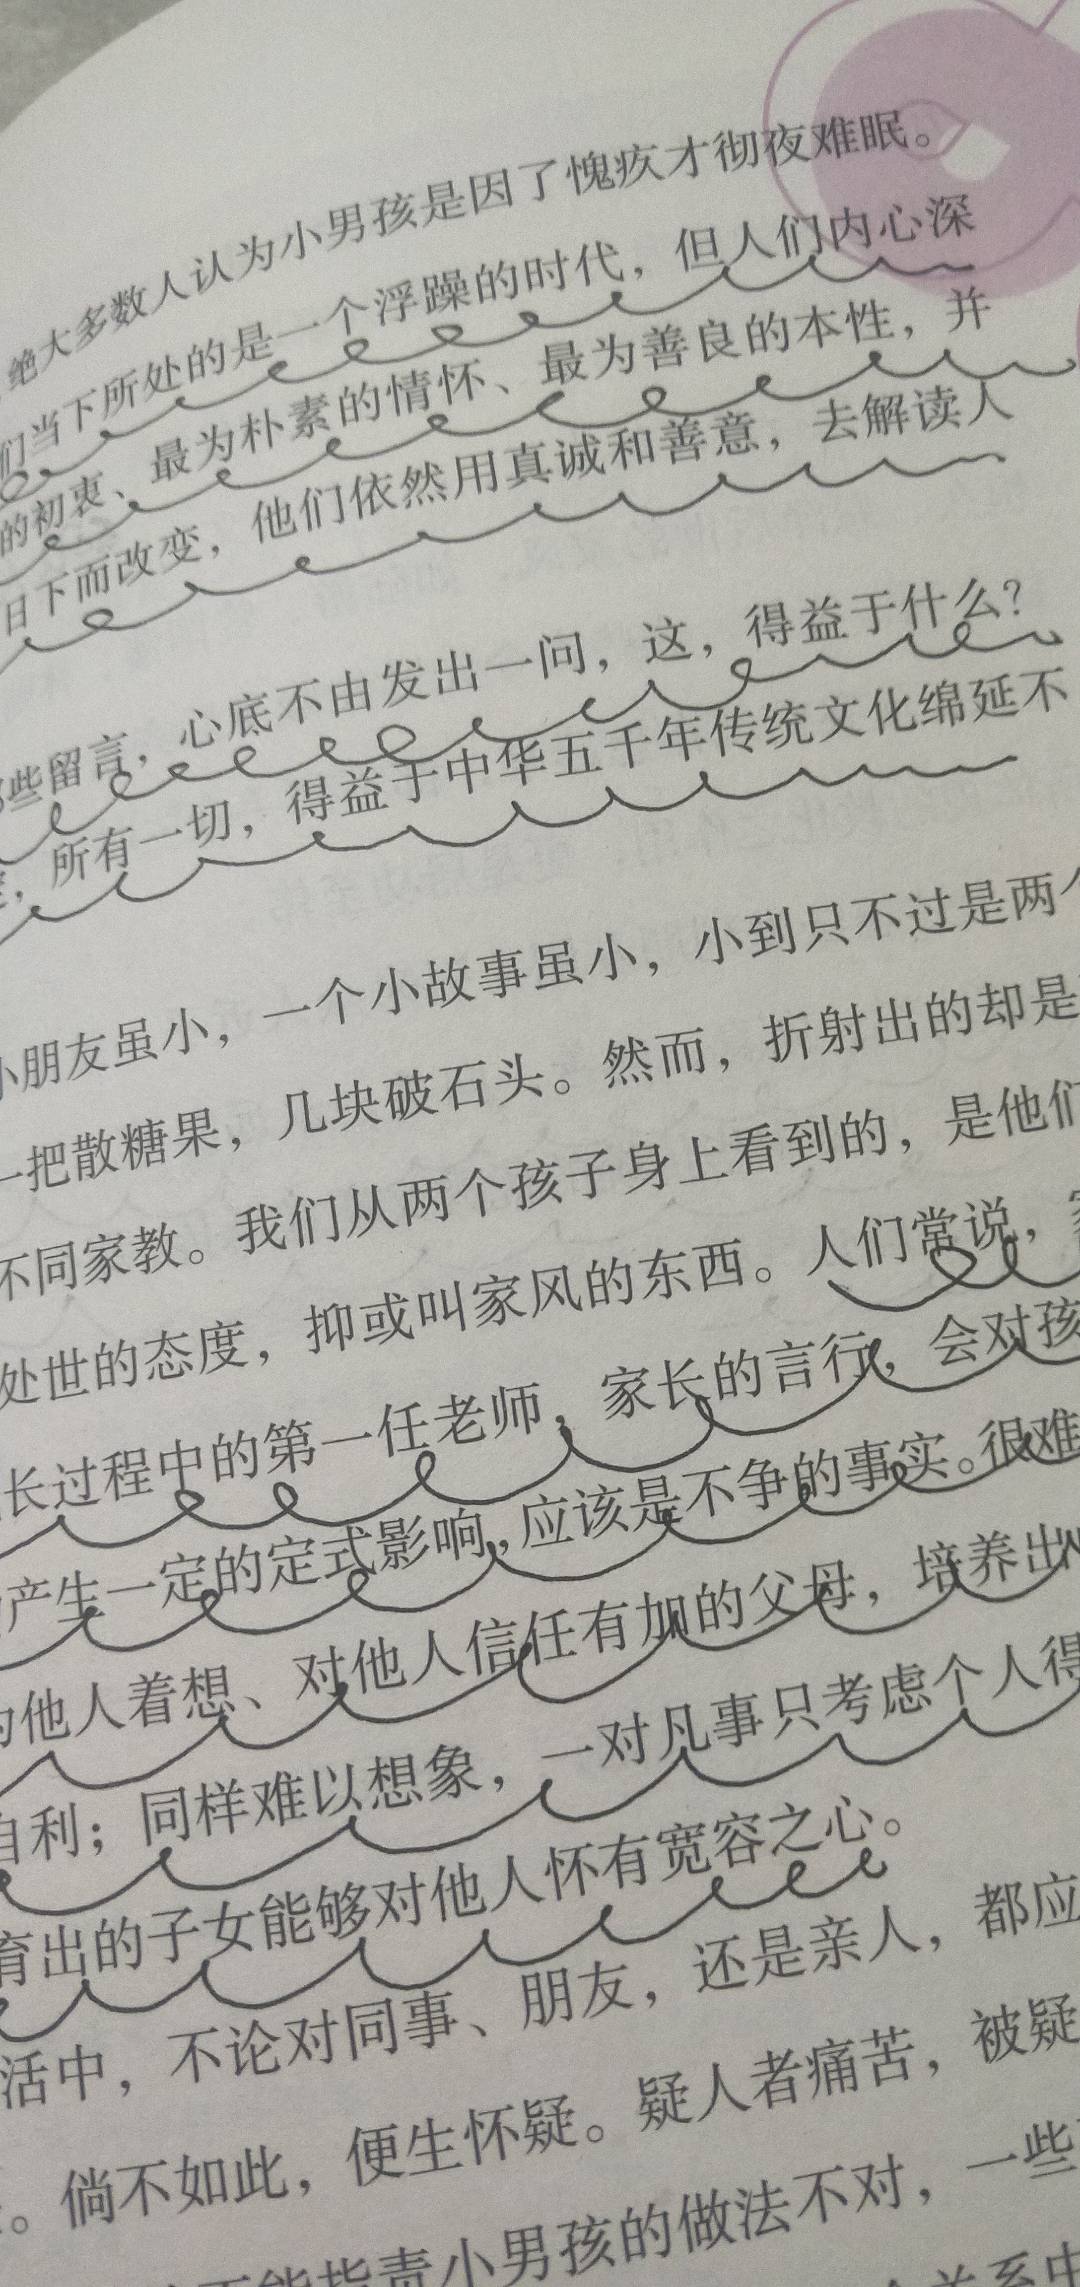 绝大多数人认为小男孩是因了愧疚才彻夜难眠。
们当下所处的是一个浮躁的时代，但人们内心深
的初衷、最为朴素的情怀、最为善良的本性，并
日下而改变，他们依然用真诚和善意，去解读人
些留言，心底不由发出一问，这，得益于什么？
，所有一切，得益于中华五千年传统文化绵延不
小朋友虽小，一个小故事虽小，小到只不过是两个
一把散糖果，几块破石头。然而，折射出的却是
不同家教。我们从两个孩子身上看到的，是他们
处世的态度，抑或叫家风的东西。人们常说，
长过程中的第一任老师，家长的言行，会对孩
产生一定的定式影响，应该是不争的事实。很难
为他人着想、对他人信任有加的父母，培养出
自利；同样难以想象，一对凡事只考虑个人得
育出的子女能够对他人怀有宽容之心。
活中，不论对同事、朋友，还是亲人，都应
。倘不如此，便生怀疑。疑人者痛苦，被疑
不能指责小男孩的做法不对，一些
关系中